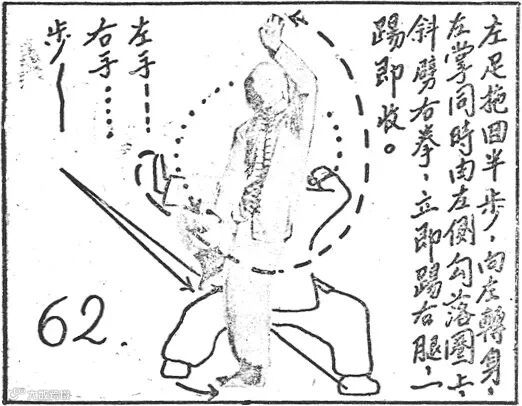 左足拖回半步，向左轉身，
左掌同時由左側勾落圈上，
斜劈右拳，立即踢右腿，一
踢即收。
左手
右手
步
62.